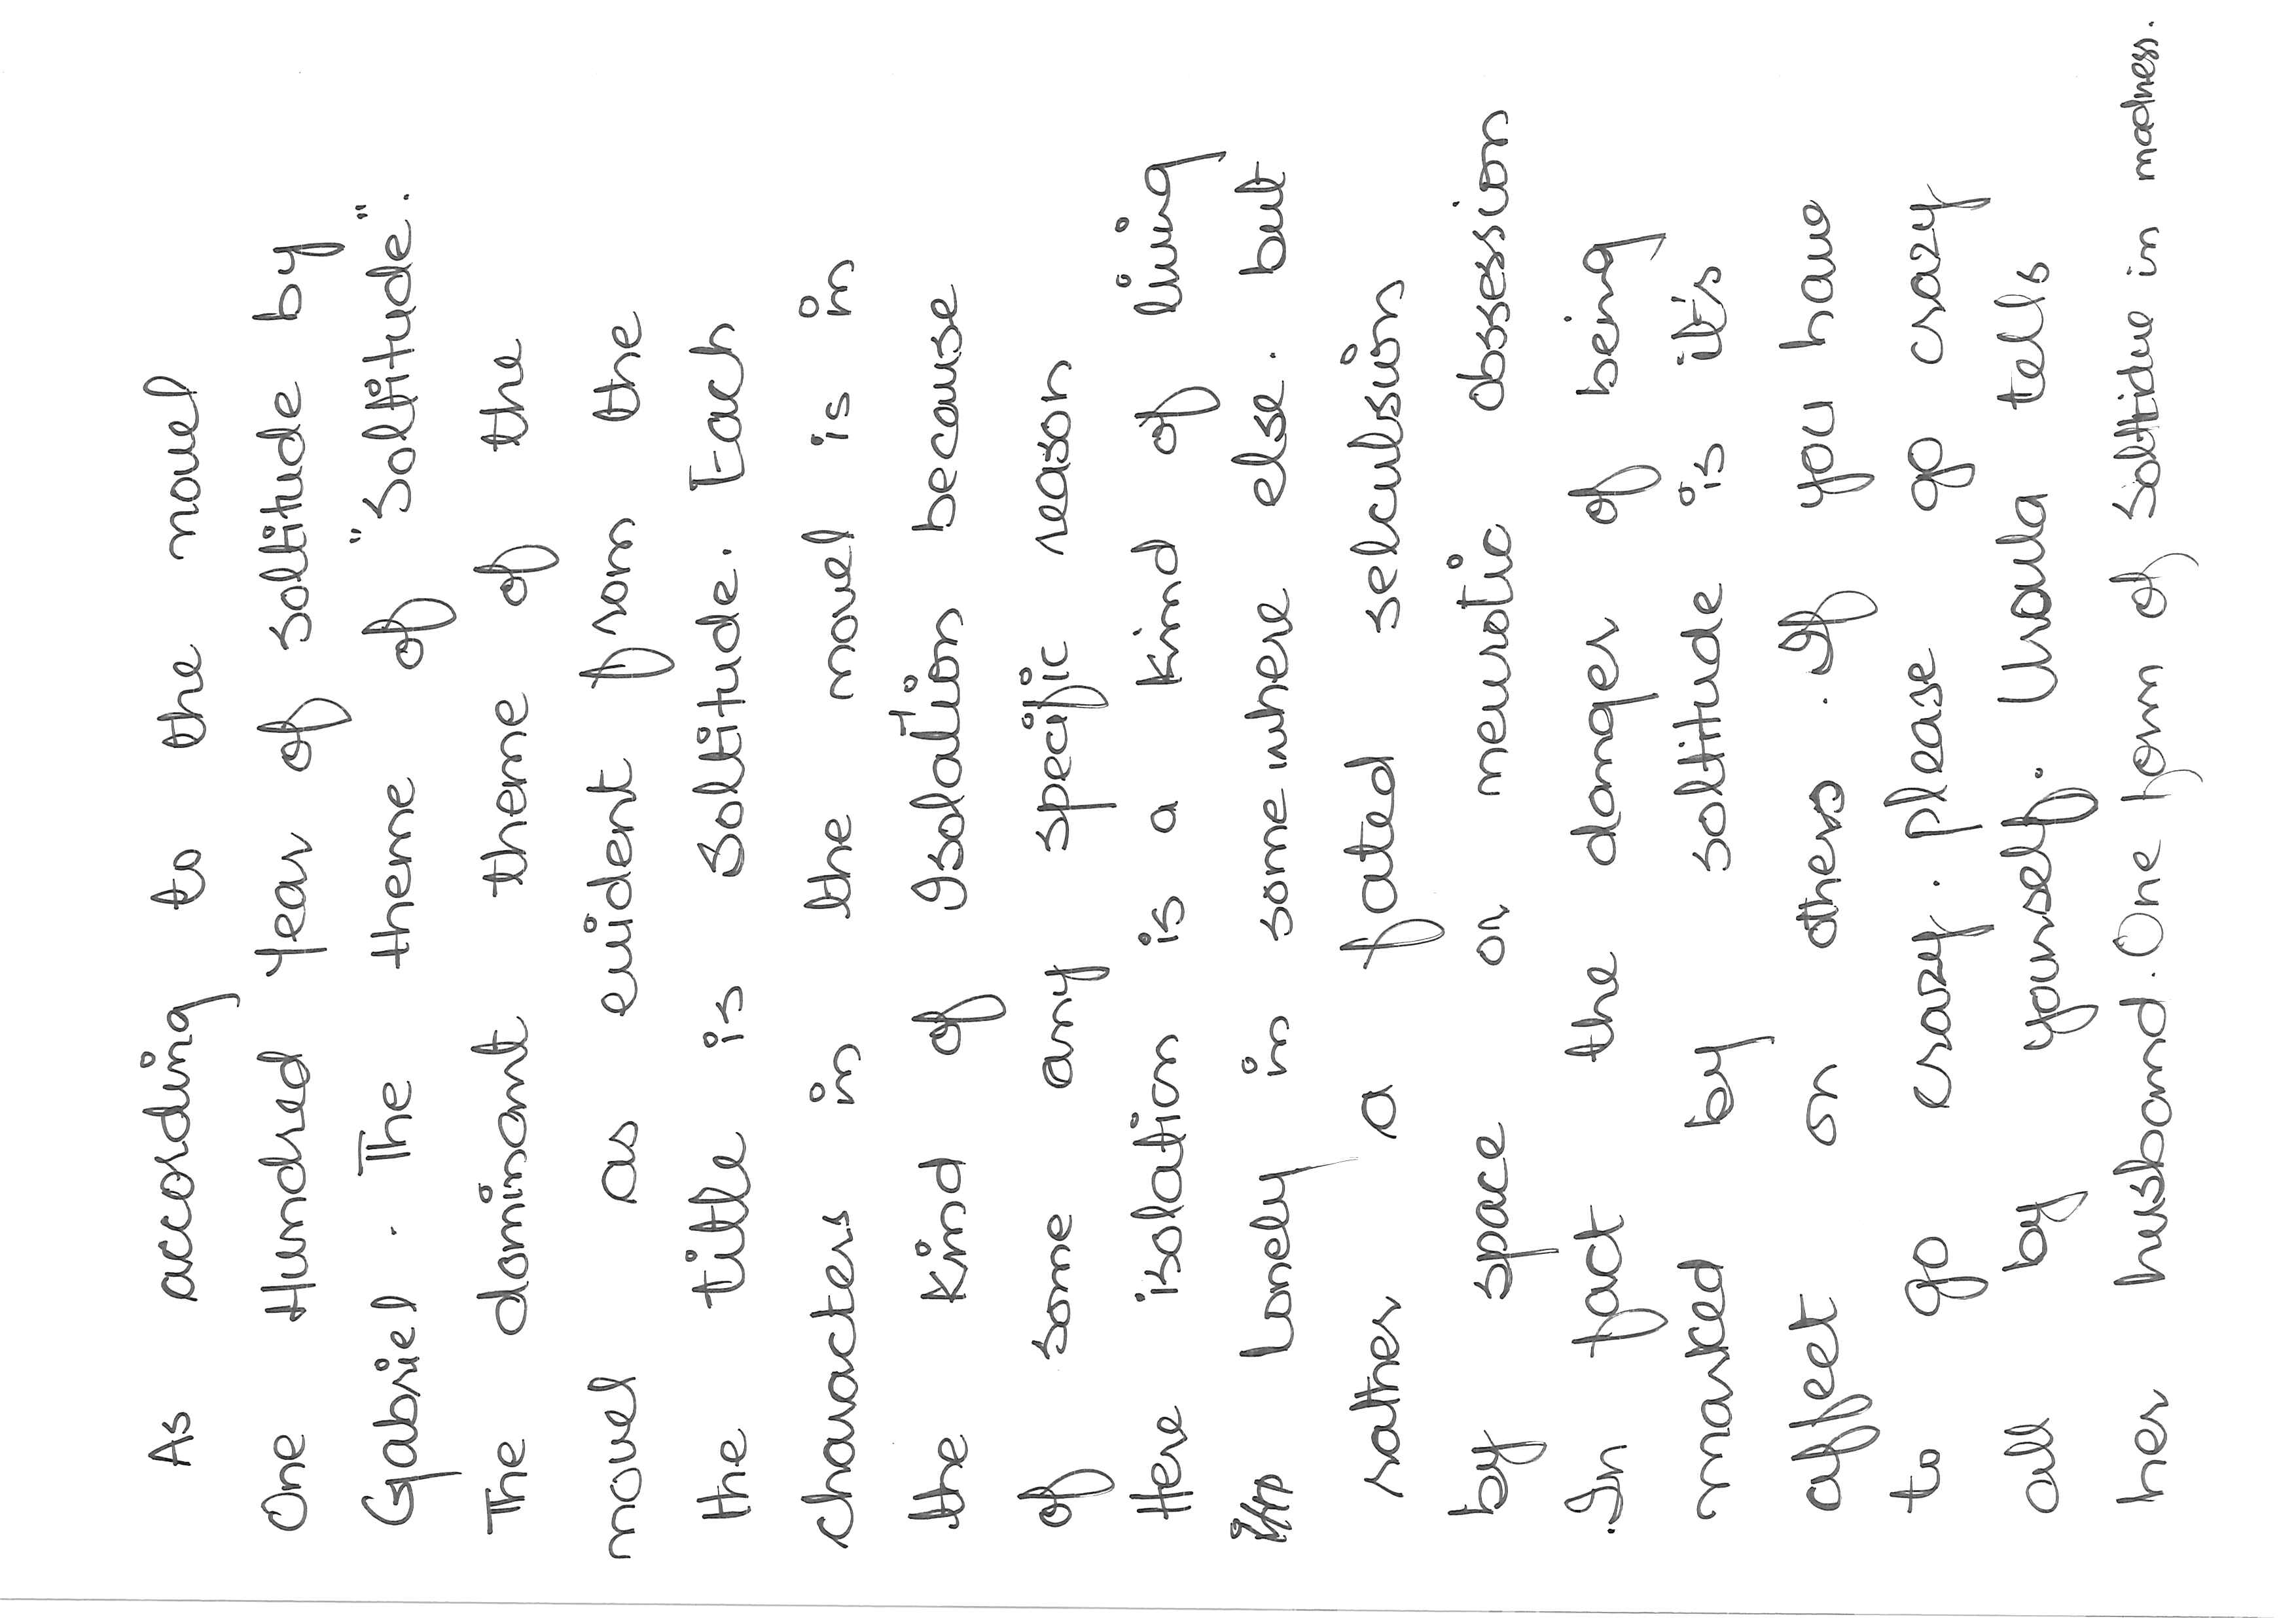 As according to the novel
One Hundred Year of Soltitude by
Gabriel . The theme of "Soltitude".
The dominant theme of the
novel as evident from the
the title is Soltitude. Each
characters in the novel is in
the kind of Isolation because
of some any specific reason
Here isolation is a kind of living
lonely in somewhere else. but
rather a fated selculsion
by space or neurotic obssession
.In fact the danger of being
marked by soltitude is it's
affect on others . If you have
to go crazy. please go crazy
all by yourself. Ursula tells
her husband. One form of Solttidue in madness.